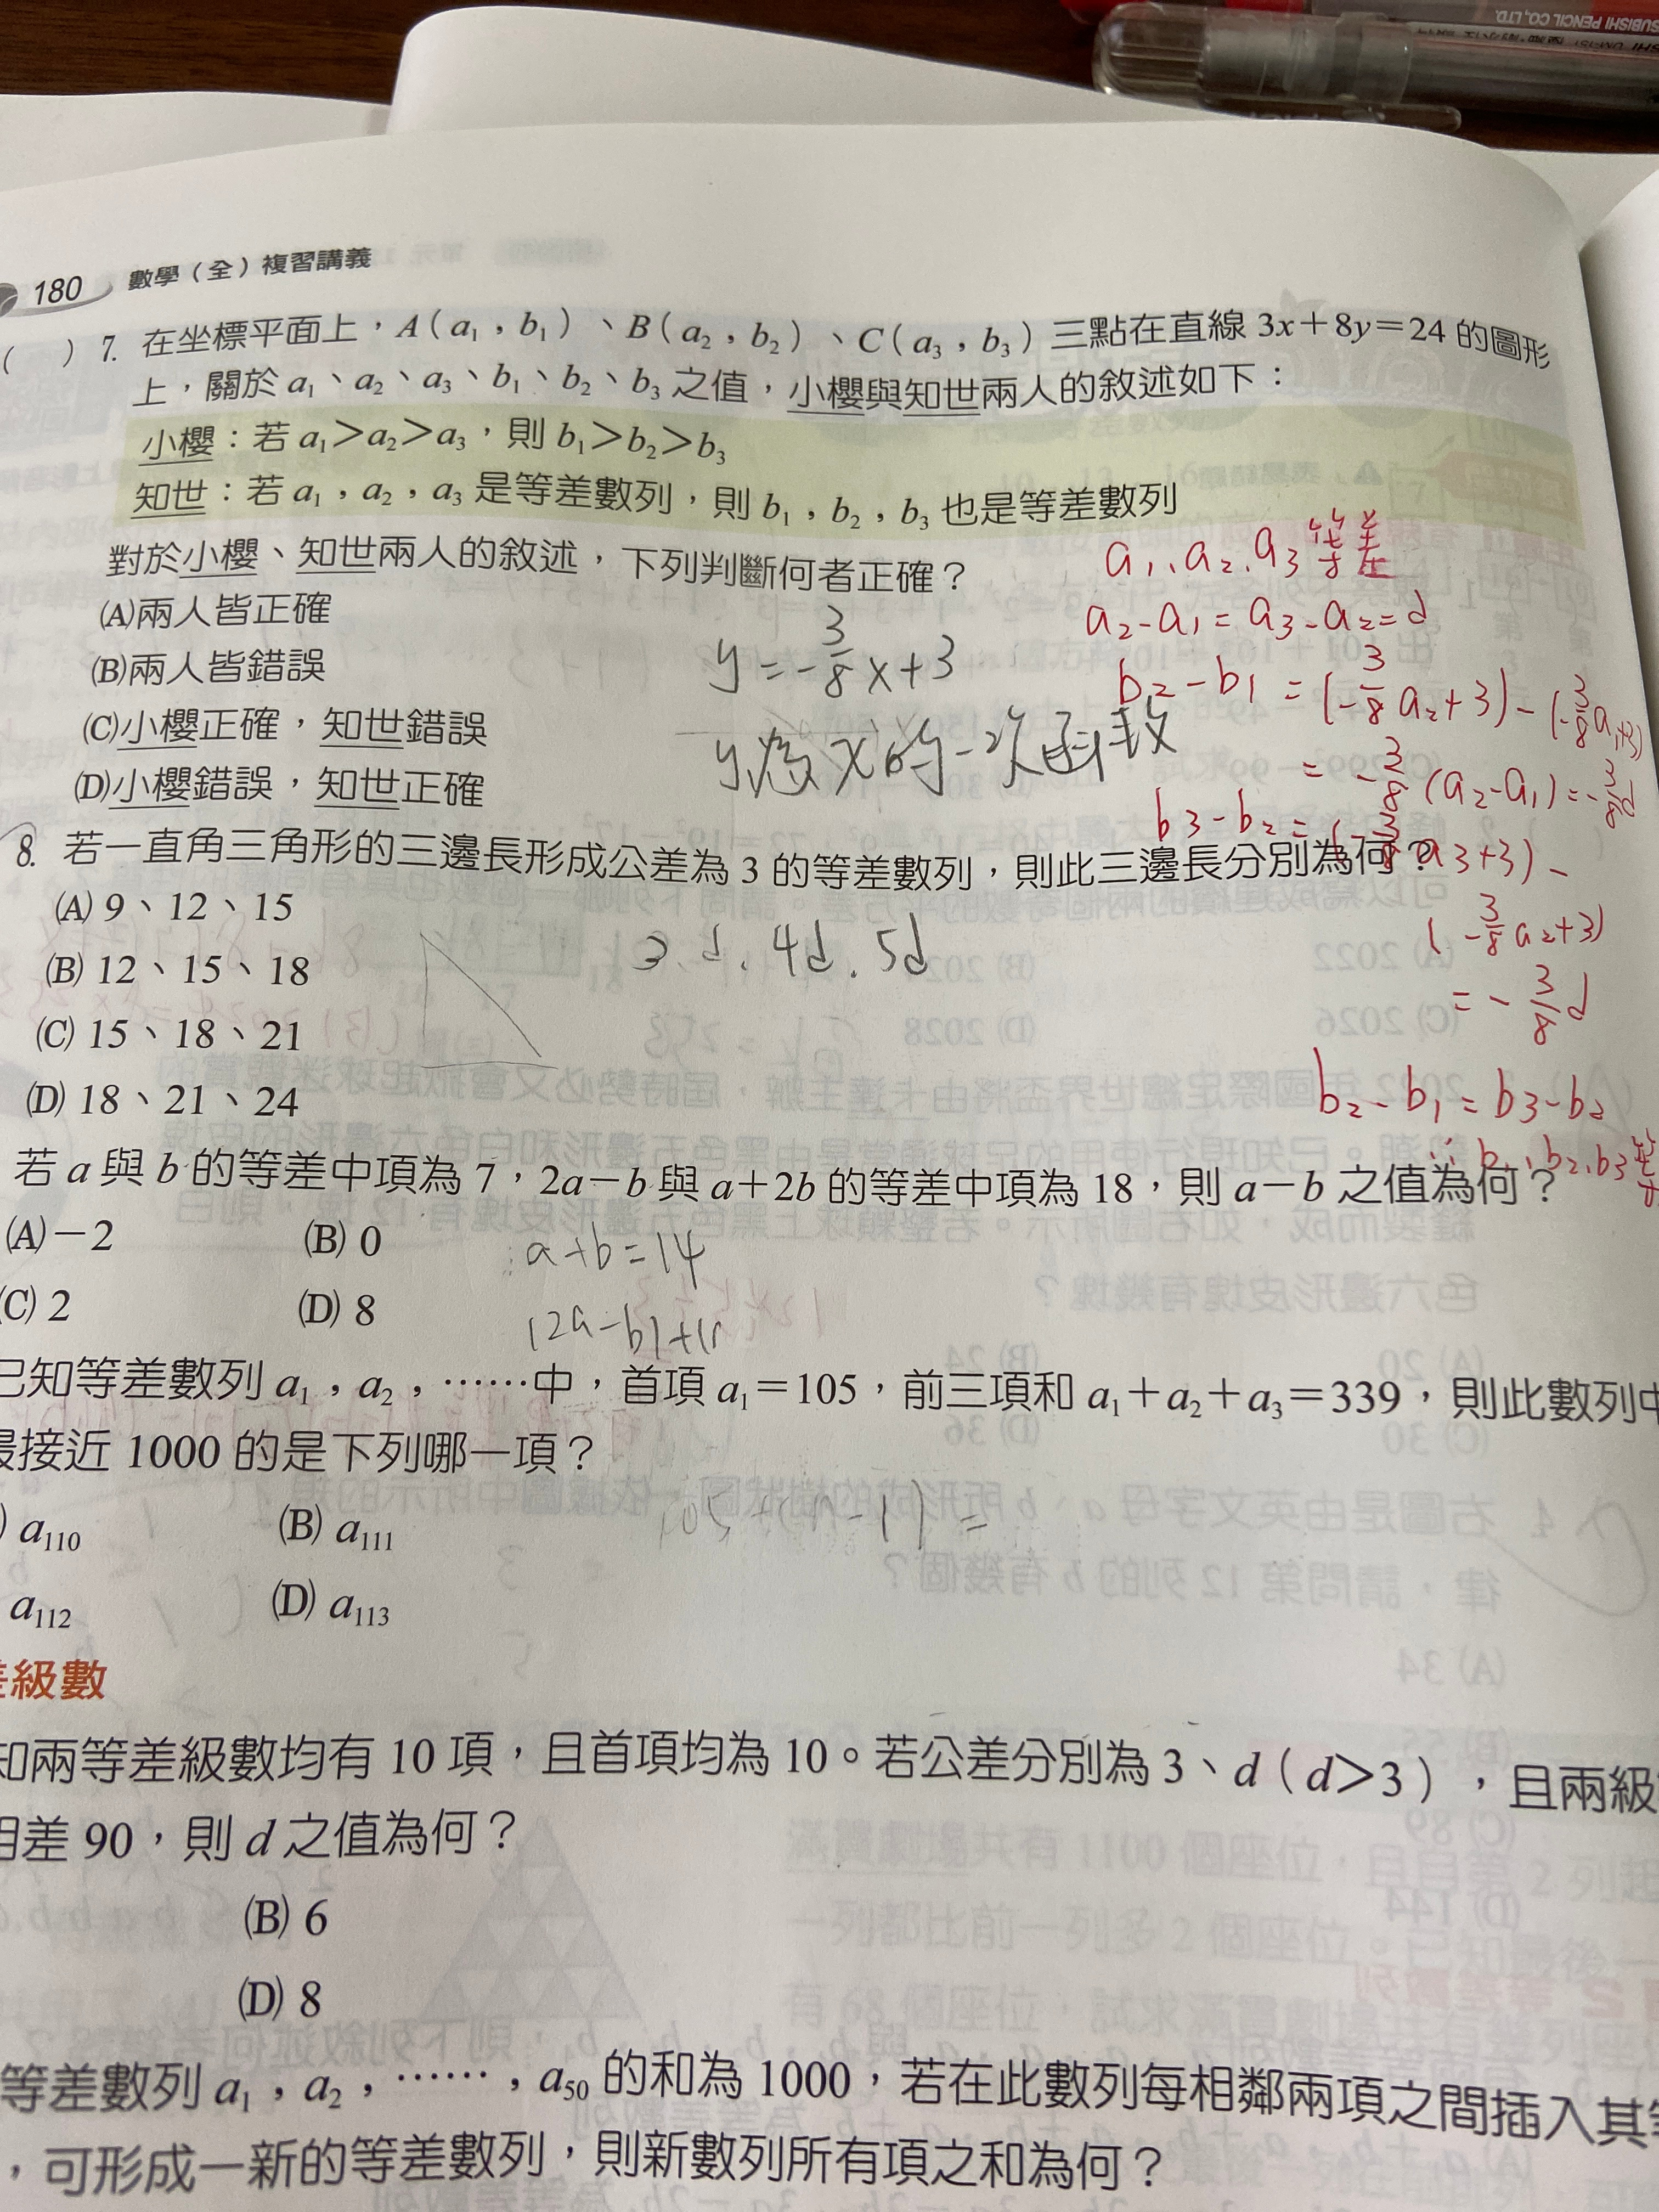 180 數學（全）複習講義
（ ）7. 在坐標平面上，A（a₁，b₁）、B（a₂，b₂）、C（a₃，b₃）三點在直線 3x＋8y＝24 的圖形
上，關於 a₁、a₂、a₃、b₁、b₂、b₃ 之值，小櫻與知世兩人的敘述如下：
小櫻：若 a₁＞a₂＞a₃，則 b₁＞b₂＞b₃
知世：若 a₁，a₂，a₃ 是等差數列，則 b₁，b₂，b₃ 也是等差數列
對於小櫻、知世兩人的敘述，下列判斷何者正確？
(A)兩人皆正確
(B)兩人皆錯誤
(C)小櫻正確，知世錯誤
(D)小櫻錯誤，知世正確
y=-3/8x+3
y為x的一次函數
a₁、a₂、a₃等差
a₂-a₁=a₃-a₂=d
b₂-b₁=(-3/8a₂+3)-(-3/8a₁+3)
=-3/8(a₂-a₁)=-3/8d
b₃-b₂=(-3/8a₃+3)-
(-3/8a₂+3)
=-3/8d
b₂-b₁=b₃-b₂
∴b₁、b₂、b₃等
8. 若一直角三角形的三邊長形成公差為 3 的等差數列，則此三邊長分別為何？
(A) 9、12、15
(B) 12、15、18
(C) 15、18、21
(D) 18、21、24
3d、4d、5d
若 a 與 b 的等差中項為 7，2a－b 與 a＋2b 的等差中項為 18，則 a－b 之值為何？
(A)－2 (B) 0
(C) 2 (D) 8
a+b=14
(2a-b)+(
已知等差數列 a₁，a₂，……中，首項 a₁＝105，前三項和 a₁＋a₂＋a₃＝339，則此數列中
最接近 1000 的是下列哪一項？
) a₁₁₀ (B) a₁₁₁
a₁₁₂ (D) a₁₁₃
105+(n-1)=
差級數
知兩等差級數均有 10 項，且首項均為 10。若公差分別為 3、d（d＞3），且兩級
相差 90，則 d 之值為何？
(B) 6
(D) 8
等差數列 a₁，a₂，……，a₅₀ 的和為 1000，若在此數列每相鄰兩項之間插入其等
，可形成一新的等差數列，則新數列所有項之和為何？